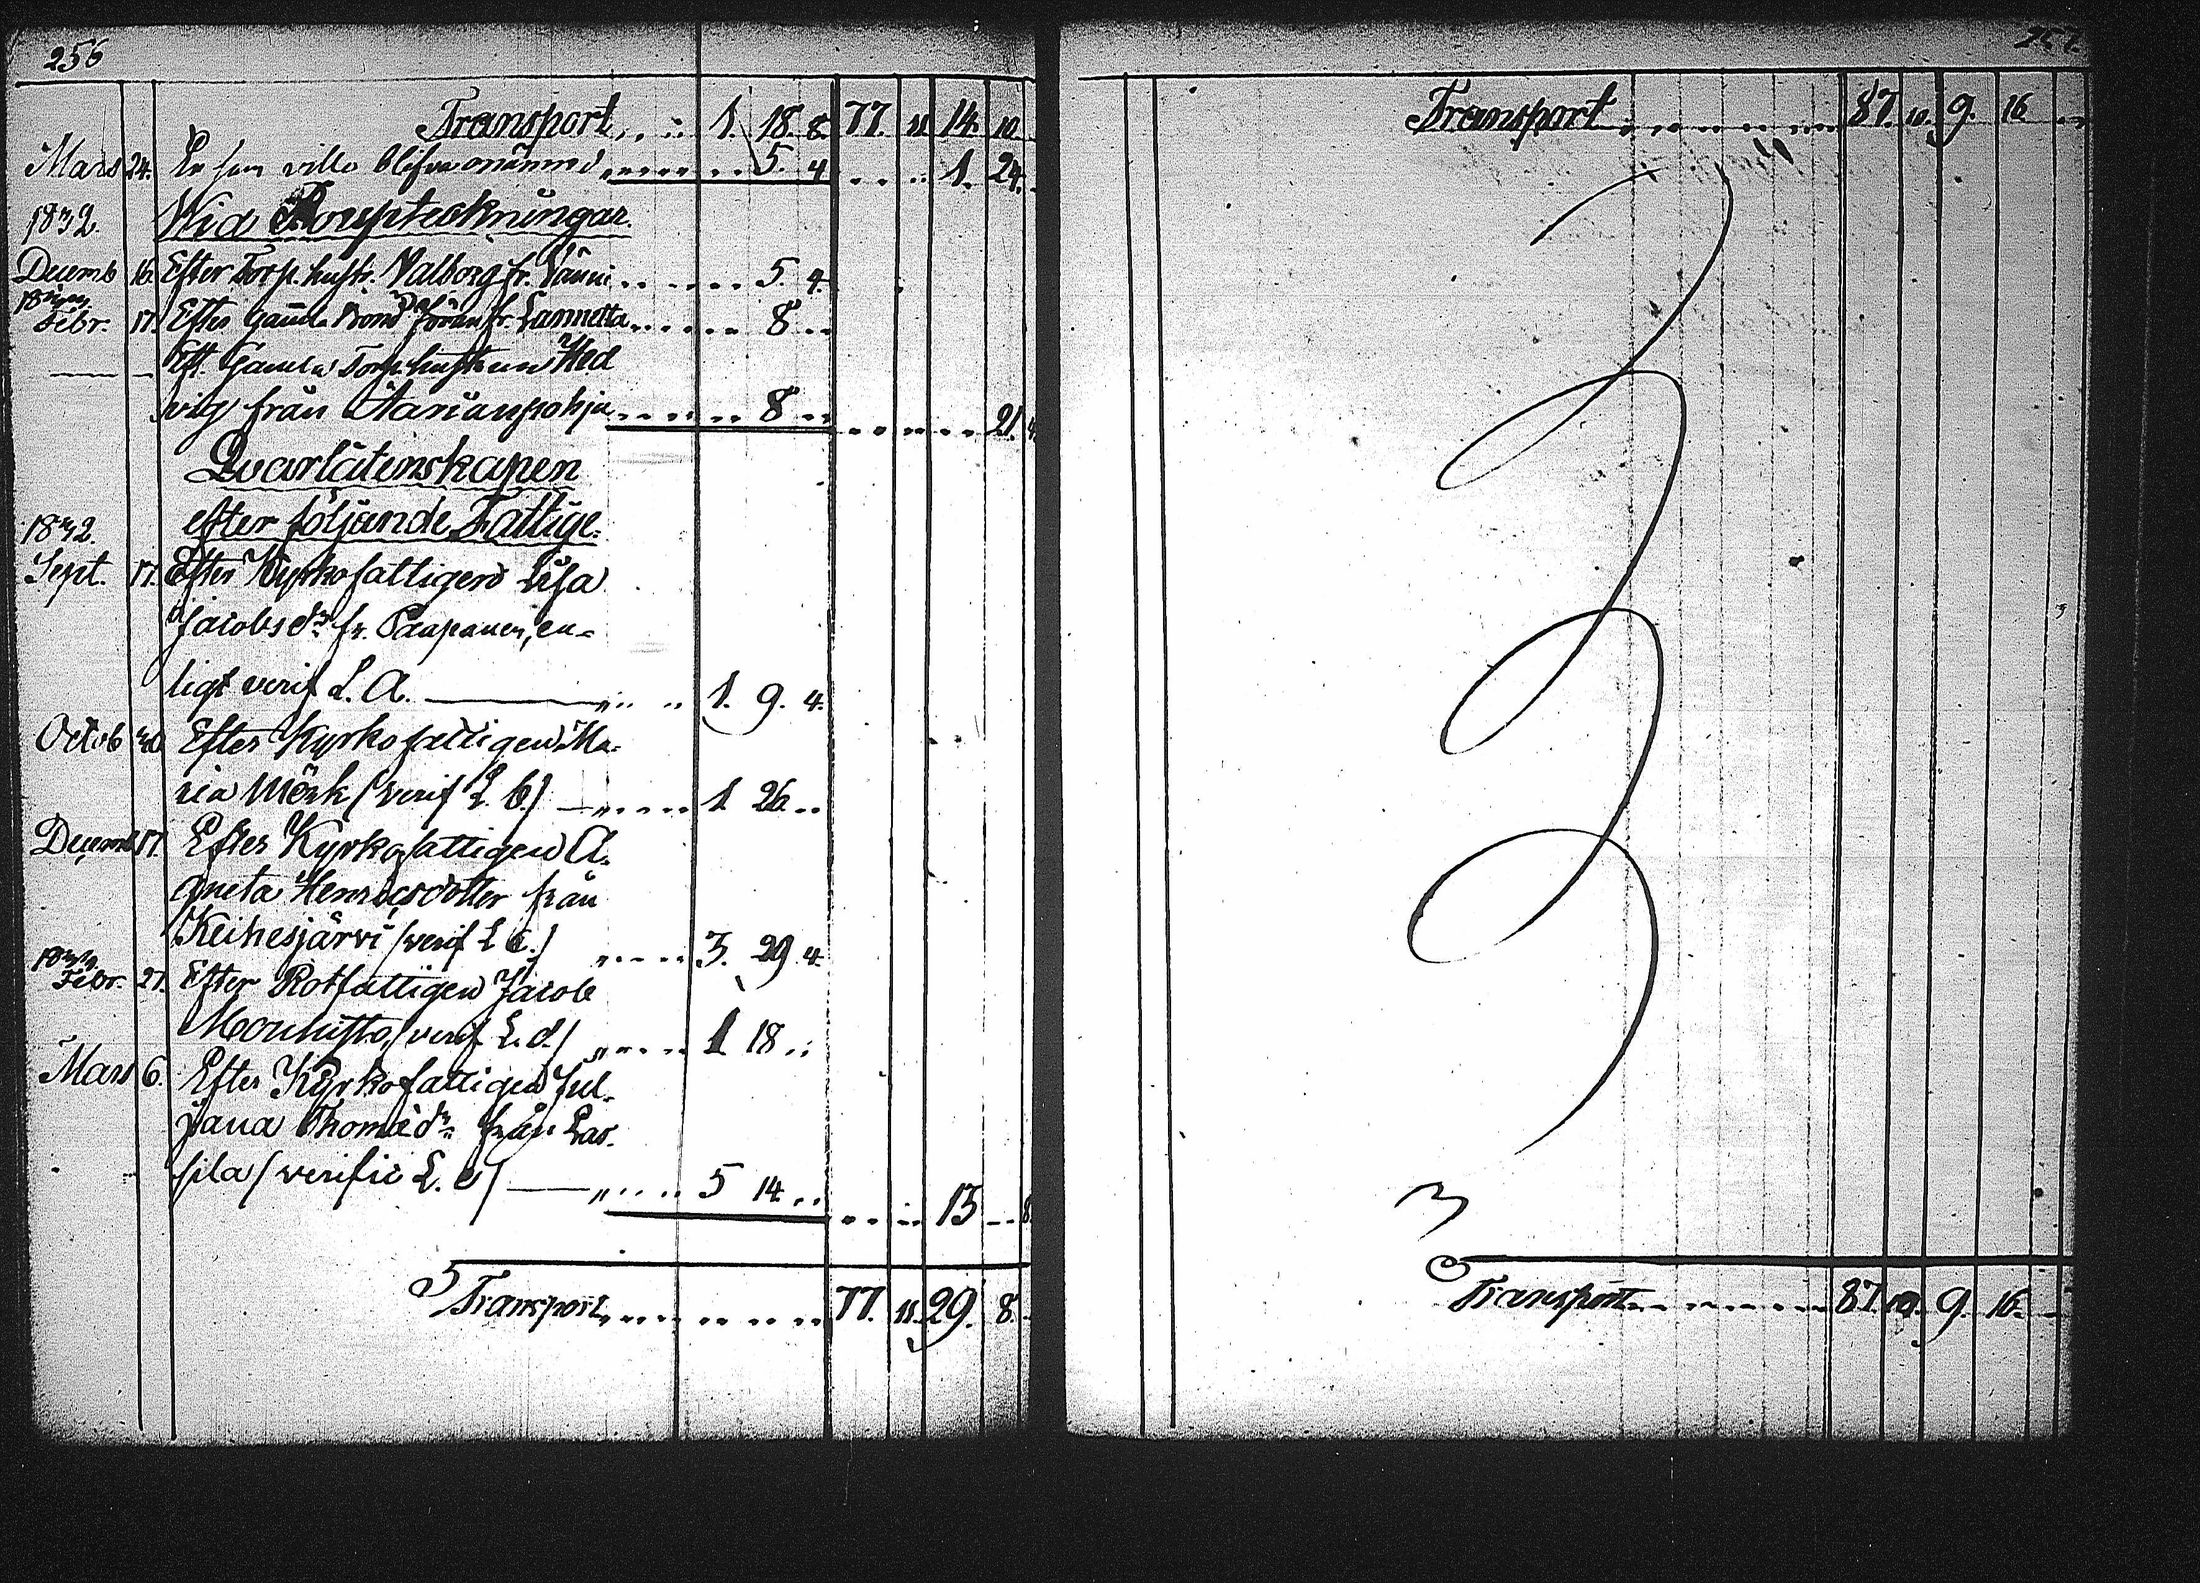 256
Transport 1. 18. 8. 77. 11. 14. 10
Mars 24. En som ville blifva onämnd 5. 4 1. 24.
1832. Wid Boupteckningar.
Decemb 16. Efter Torp. hustr. Valborg fr. 5. 4.
1833 Febr. 17. Efter Gamla Bond fr. Lannetta 8
Eft. Gamla Torp hustrun Hed
vig från 8 21. 4
Qvarlåtenskapen
efter följande Fattige.
1832.
Sept. 17. Efter Kyrkofattigen Lisa
Jacobsdr fr. Paapanen, en-
ligt verif L. A. 1. 9. 4.
Octob 30 Efter Kyrkofattigen Ma-
ria Mörk (verif L. b.) 1 26
Decemb 17. Efter Kyrkofattigen A-
gneta Henricsdotter från
Keihesjärvi (verif L c.) 3. 29 4.
1833
Febr. 27. Efter Rotfattigen Jacob
(verif L. d.) 1 18
Mars 6. Efter Kyrkofattigen Jul-
jana Thomædr från Las-
sila (verific L. e) 5 14 13 8
Transport 77. 11. 29. 8.
257.
Transport 87. 10. 9. 16
Transport 87. 10. 9. 16.